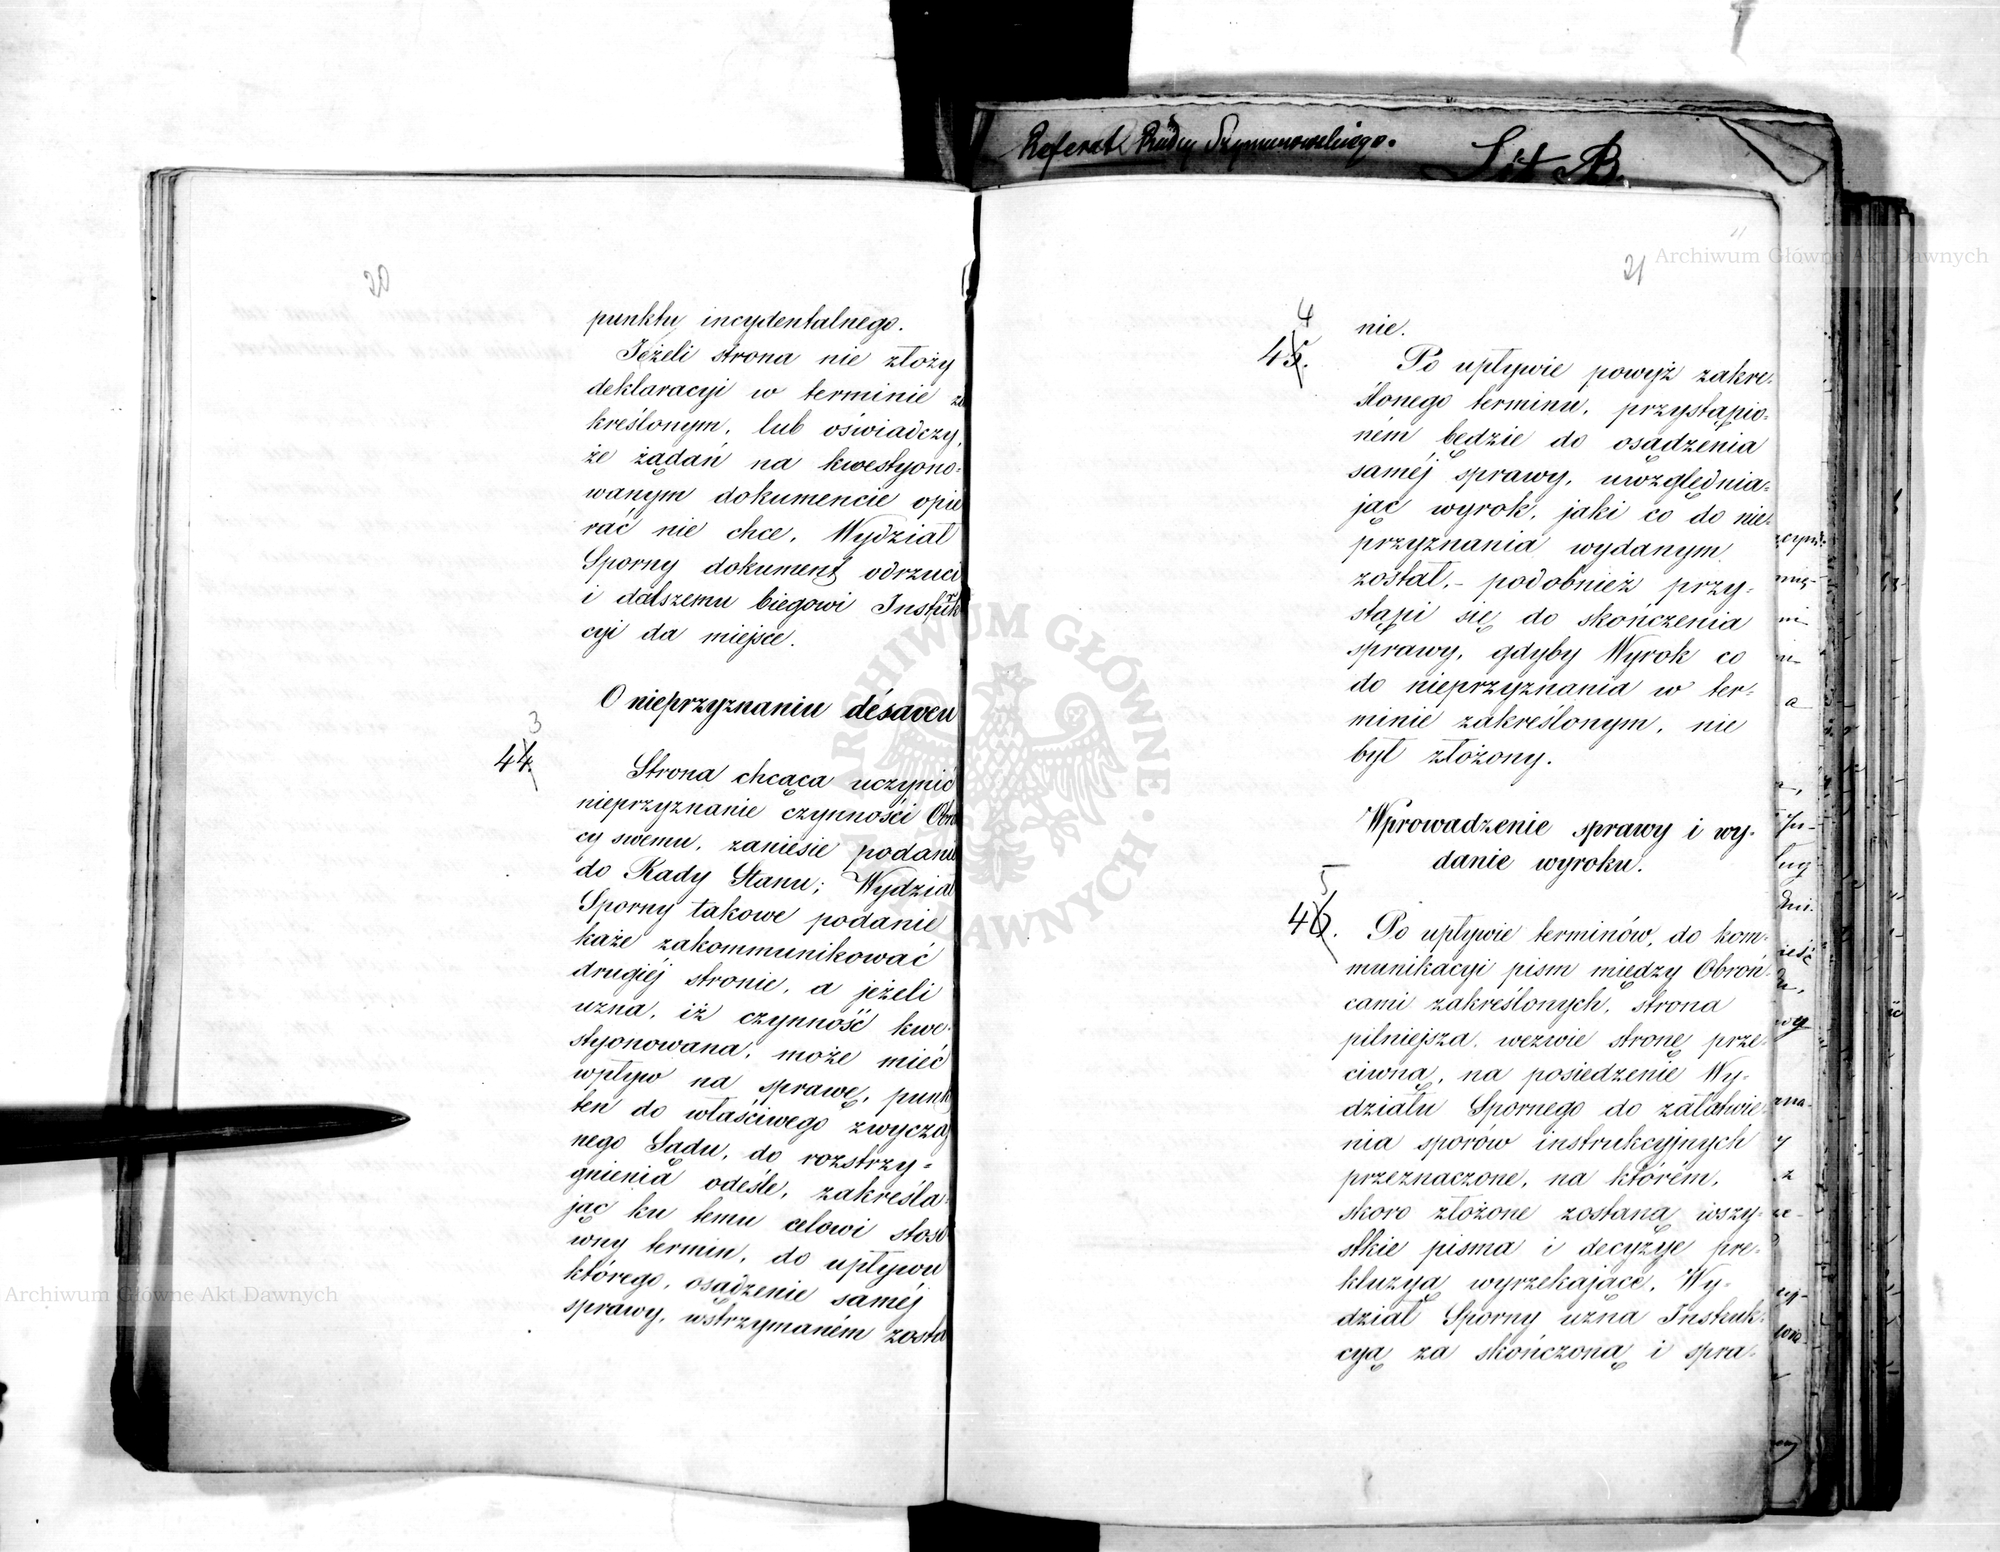 20
punktu incydentalnego.
Jeżeli strona nie złoży
deklaracyi w terminie za
kreślonym, lub oświadczy,
że żądań na kwestyono-
wanym dokumencie opie
rać nie chce, Wydział
Sporny dokument odrzuci
i dalszemu biegowi Instruk
cyi da miejsce.
O nieprzyznaniu désaveu
3
44.
Strona chcąca uczynić
nieprzyznanie czynności Obroń
cy swemu, zaniesie podanie
do Rady Stanu; Wydział
Sporny takowe podanie
każe zakommunikować
drugiéj stronie, a jeżeli
uzna, iż czynność kwe-
styonowana, może mieć
wpływ na sprawę, punkt
ten do właściwego zwyczaj
nego Sądu, do rozstrzy-
gnienia odeśle, zakreśla-
jąc ku temu celowi stoso
wny termin, do upływu
którego, osądzenie saméj
sprawy, wstrzymaném zosta
Referat Radcy Szymanowskiego.
Lit B.
11
21
nie.
4
45.
Po upływie powyż zakre-
ślonego terminu, przystąpio-
ném będzie do osądzenia
saméj sprawy, uwzględnia-
jąc wyrok, jaki co do nie-
przyznania wydanym
został, - podobnież przy-
stąpi się do skończenia
sprawy, gdyby Wyrok co
do nieprzyznania w ter-
minie zakreślonym, nie
był złożony.
Wprowadzenie sprawy i wy-
danie wyroku.
5
46.
Po upływie terminów, do kom-
munikacyi pism między Obroń-
cami zakreślonych, strona
pilniejsza, wezwie stronę prze-
ciwną, na posiedzenie Wy-
działu Spornego do załatwie-
nia sporów instrukcyjnych
przeznaczone, na którém,
skoro złożone zostaną wszy-
stkie pisma i decyzye pre-
kluzyą wyrzekające, Wy-
dział Sporny uzna Instruk-
cyą za skończoną i spra-
Archiwum Główne Akt Dawnych
Archiwum Główne Akt Dawnych
ARCHIWUM GŁÓWNE AKT DAWNYCH